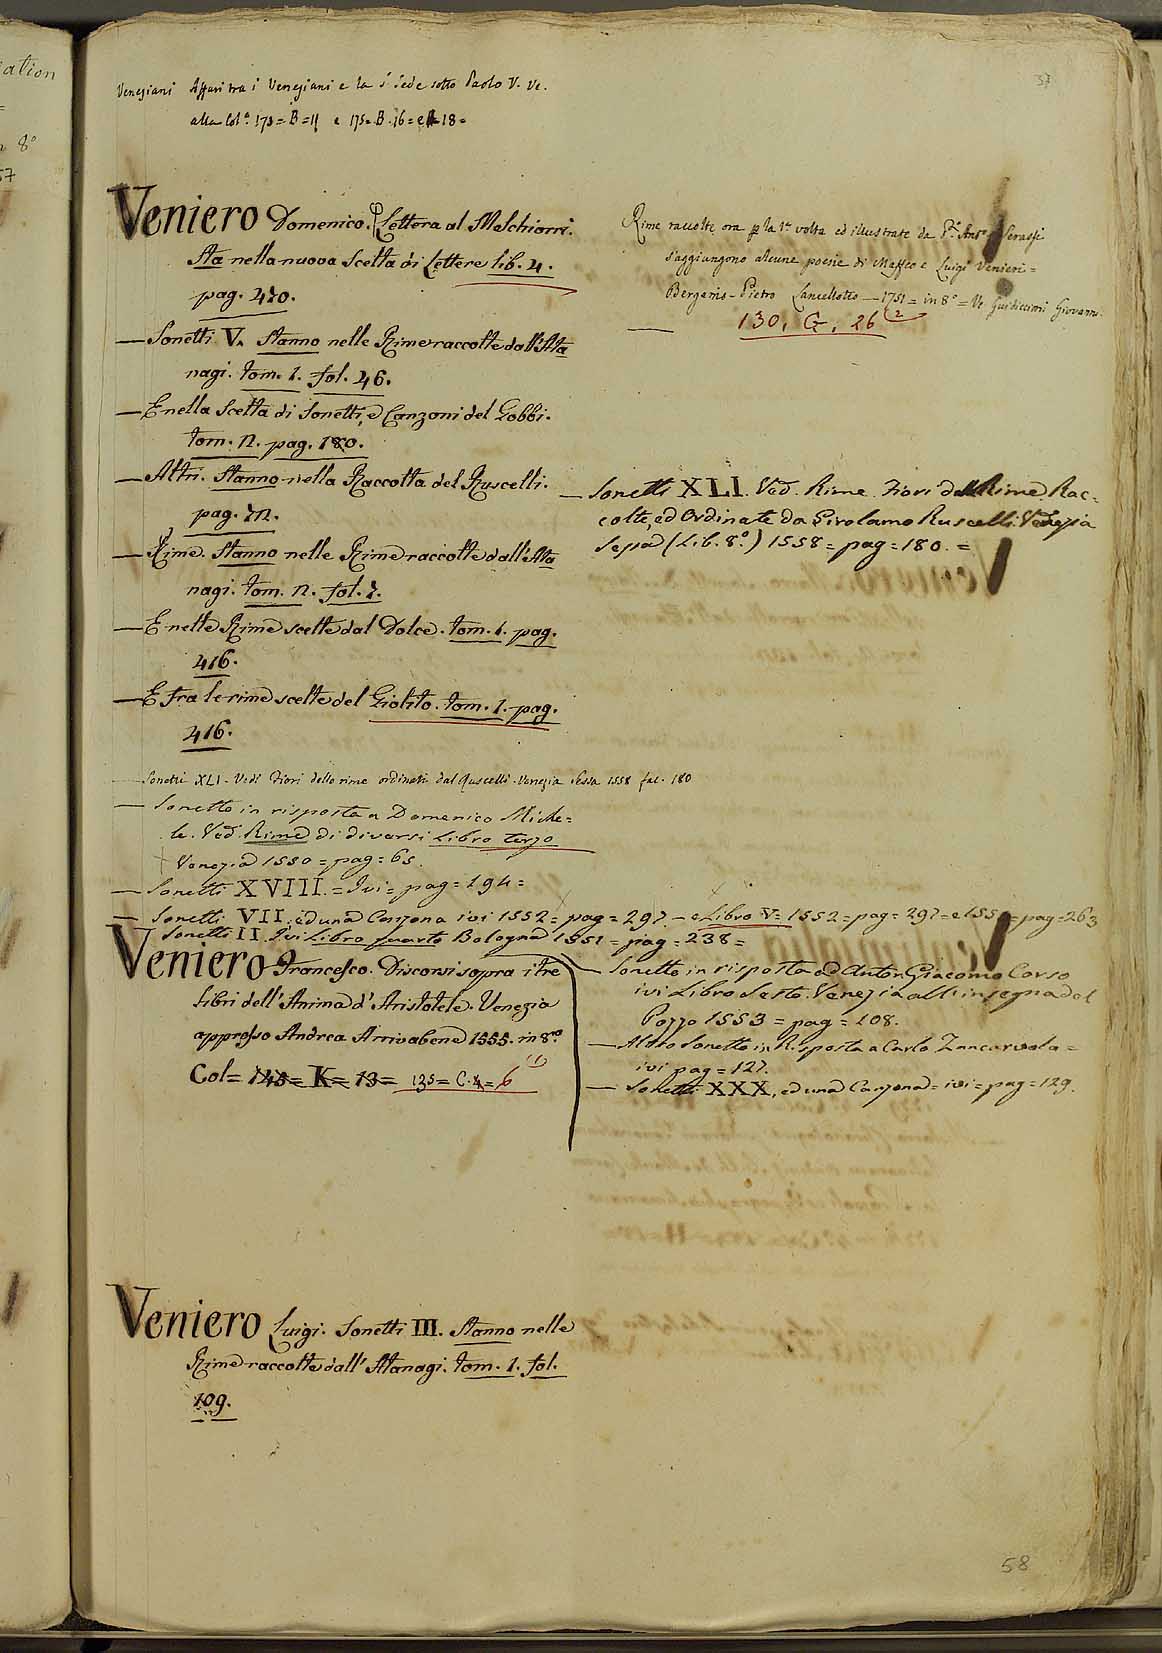 37
Veneziani Affari tra i Veneziani e la S. Sede sotto Paolo V. Ve.
alla Col.ª 173=B=11 e 175=B.16= e 18=
Veniero Domenico. Lettera al Melchiorri.
Sta nella nuova Scelta di Lettere lib. 4.
pag. 270.
— Sonetti V. Stanno nelle Rime raccolte dall'Ata
nagi. tom. 1. fol. 46.
— E nella Scelta di Sonetti, e Canzoni del Gobbi.
tom. II. pag. 180.
— Altri. Stanno nella Raccolta del Ruscelli.
pag.
— Rime. Stanno nelle Rime raccolte dall'Ata
nagi. tom. II. fol. 7.
— E nelle Rime scelte dal Dolce. tom. 1. pag.
416.
— E fra le rime scelte del Giolito. tom. 1. pag.
416.
— Sonetti XLI. Vedi Fiori delle rime ordinati dal Ruscelli. Venezia Sessa 1558 fac. 180
— Sonetto in risposta a Domenico Miche=
le. Ved. Rime di diversi Libro terzo
Venezia 1550 = pag = 65.
— Sonetti XVIII. = Ivi = pag = 194 =
— Sonetti VII. ed una Canzona ivi 1552 = pag = 297 — e Libro V = 1552 = pag = 297 = e 155 = pag = 263
Sonetti II. Ivi Libro quarto Bologna 1551 = pag = 238 =
Rime raccolte ora p la 1ª volta ed illustrate da P. Ant.º Serassi
S'aggiungono alcune poesie di Maffeo e Luigi Venieri =
Bergamo - Pietro Lancellotto — 1751 = in 8º = Ve Guidiccioni Giovanni.
— 130. G. 26 2
— Sonetti XLI. Ved. Rime. Fiori delle Rime Rac=
colte, ed Ordinate da Girolamo Ruscelli. Venezia
Sessa (Lib. 8º.) 1558 = pag = 180. =
Veniero Francesco. Discorsi sopra i tre
libri dell'Anima d'Aristotele. Venezia
appresso Andrea Arrivabene 1555. in 8.º
Col= 148= K= 13= 135= C. 4= 6 (1)
— Sonetto in risposta ad Anton Giacomo Corso
ivi Libro Sesto. Venezia all'insegna del
Pozzo 1553 = pag = 108.
— Altro Sonetto in Risposta a Carlo Zancaruola =
ivi pag = 127.
— Sonetti XXX, ed una Canzona = ivi = pag = 129.
Veniero Luigi. Sonetti III. Stanno nelle
Rime raccolte dall'Atanagi. tom. 1. fol.
109.
58